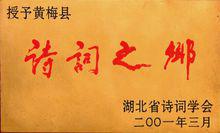 授予黄梅县
诗词之乡
湖北省诗词学会
二00一年三月